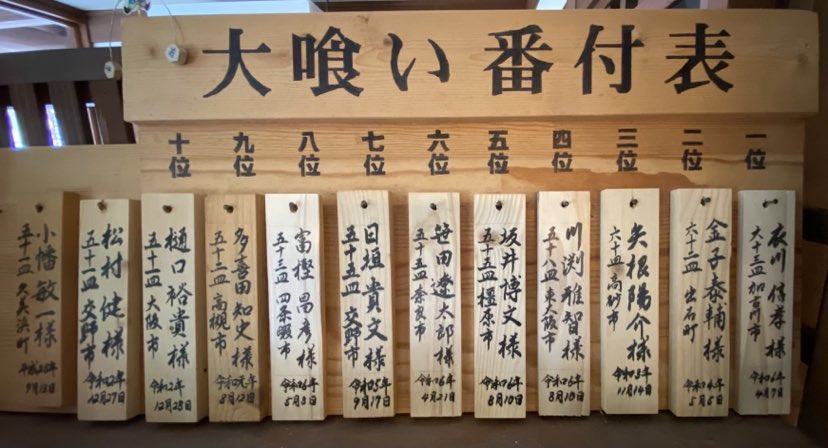 大喰い番付表
一位
衣川信孝様
六十三皿 加古川市
令和6年
4月7日
二位
金子泰輔様
六十二皿 出石町
令和4年
5月5日
三位
矢根陽介様
六十皿 高砂市
令和3年
11月14日
四位
川渕雅智様
五十八皿 東大阪市
令和6年
8月10日
五位
坂井博文様
五十五皿 橿原市
令和6年
8月10日
六位
笹田遼太郎様
五十五皿 奈良市
令和6年
4月21日
七位
目垣貴文様
五十五皿 交野市
令和5年
9月17日
八位
富樫昌彦様
五十三皿 四条畷市
令和6年
5月5日
九位
多喜田知史様
五十二皿 高槻市
令和元年
8月12日
十位
樋口裕貴様
五十一皿 大阪市
令和2年
12月28日
松村健様
五十一皿 交野市
令和2年
12月27日
小幡敏一様
五十一皿 久美浜町
平成28年
9月18日